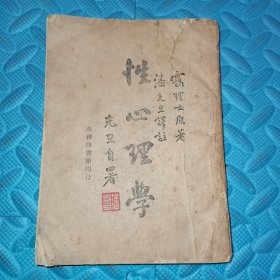 靄理士原著
潘光旦譯註
性心理學
光旦自署
商務印書館印行